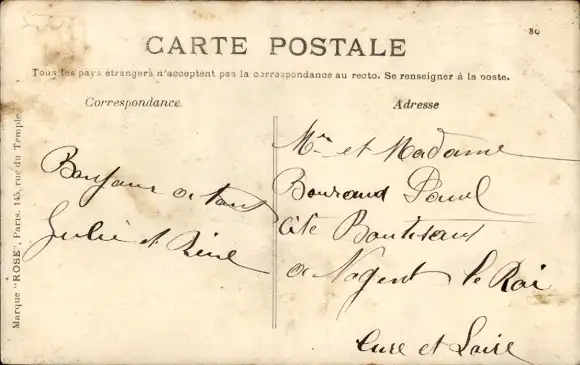 80
CARTE POSTALE
Tous les pays étrangers n'acceptent pas la correspondance au recto. Se renseigner à la poste.
Correspondance
Adresse
Marque "ROSE", Paris. 145, rue du Temple
Bonjour a tous
Julie et René
Mr et Madame
Bouraud Paul
Cité
a Nogent le Roi
Eure et Loire